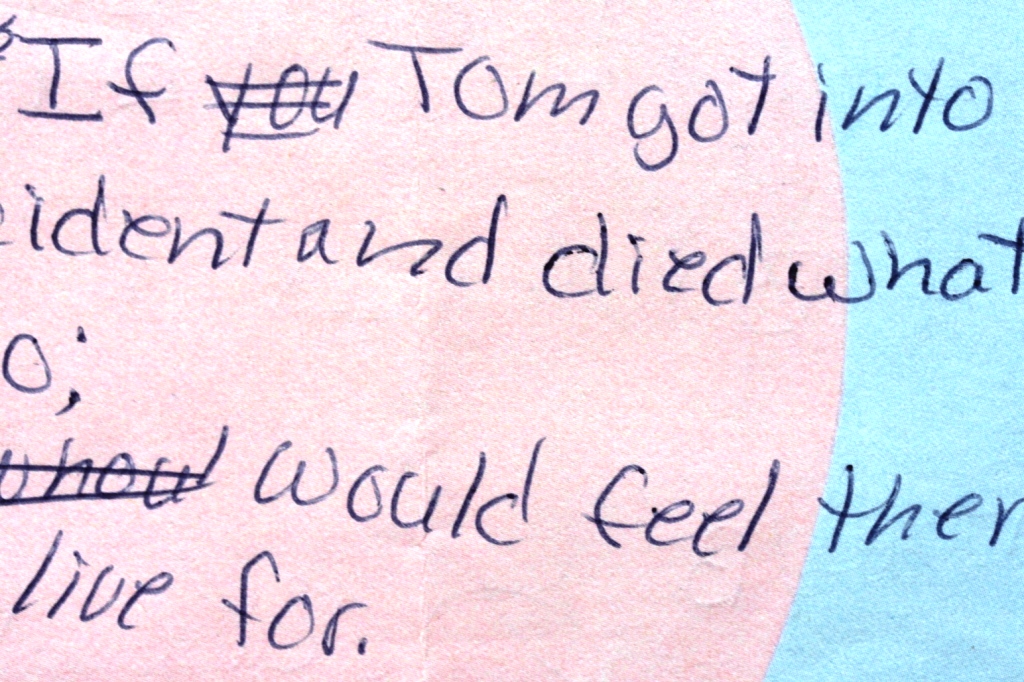 If you Tom got into
ident and died what
o;
would feel ther
live for.